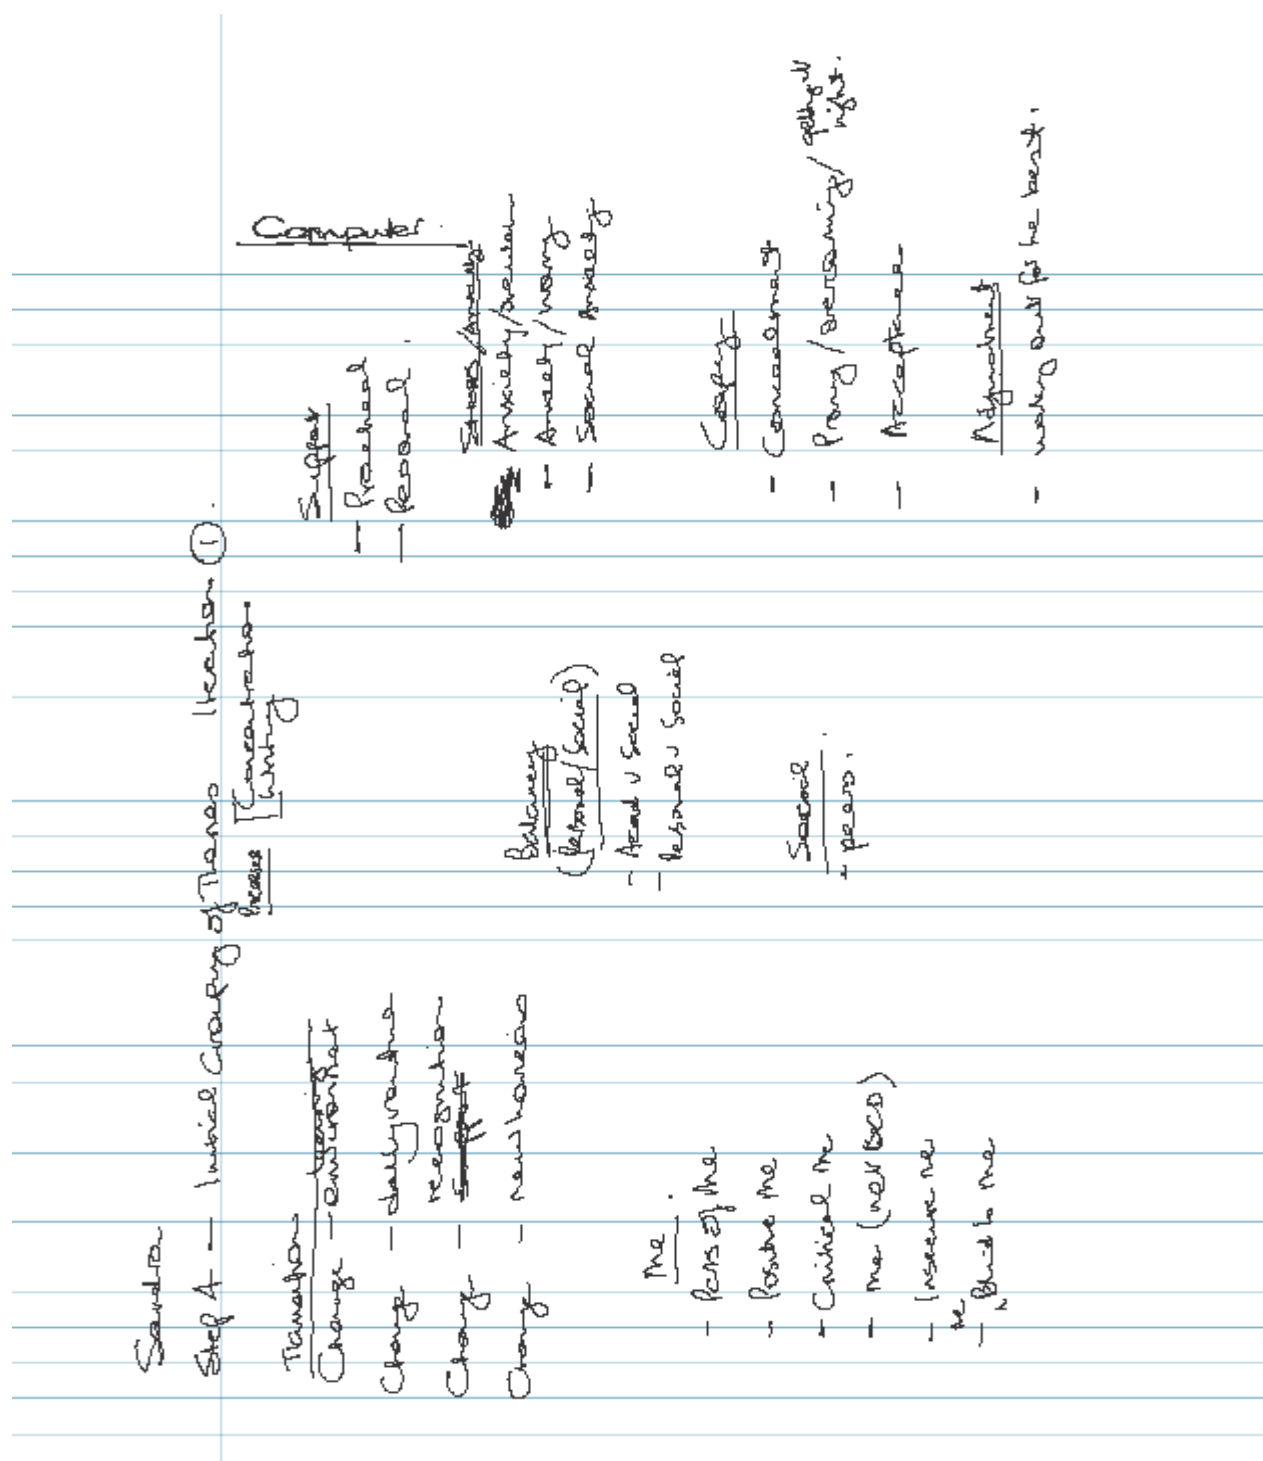 Sandra
Step A — Initial Grouping of Themes Iteration ①
Computer
Transition
Change - environment
Change - daily routine
Change - recognition
Change - new horizons
me
- Pers of me
- Positive me
- Critical me
- me (ver BCD)
- Insecure me
- Blind to me
Processes
[Concentration
Writing
Balancing
(Personal/Social)
- Acad v Social
- Personal v Social
Social
- peers.
Support
- Practical
- Personal
Stress/Anxiety
Anxiety/
- Anxiety/worry
- Social Anxiety
Coping
- Concealment
- Proving/overcoming/getting it right.
- Acceptance
Adjustment
- working out for the best.